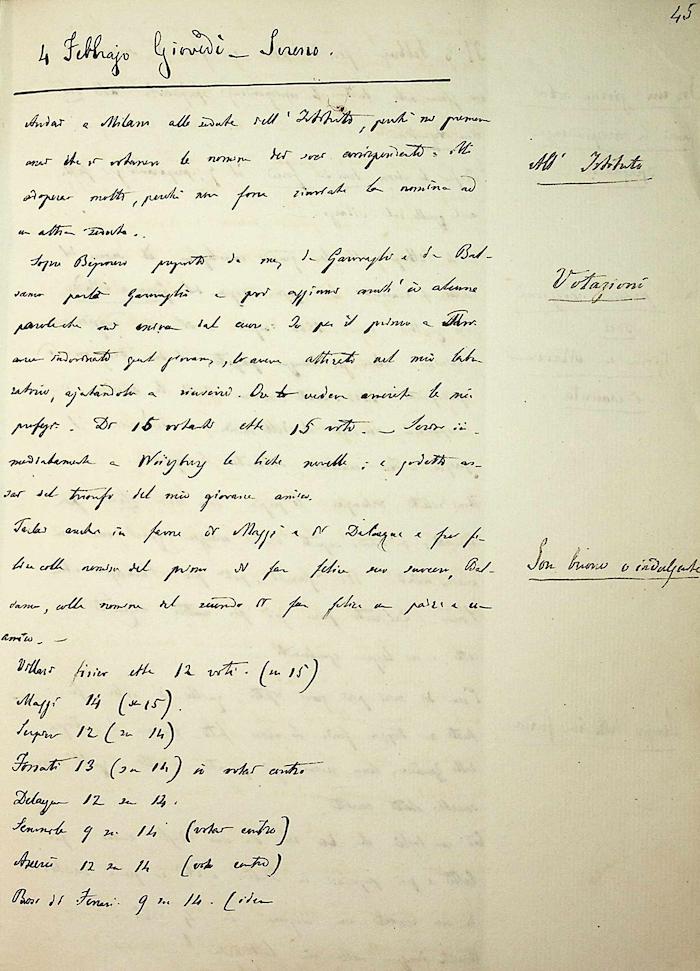 45
4 Febbrajo Giovedì - Sereno.
Andai a Milano alle sedute dell' Istituto, perchè mi premeva
assai che si votassero le nomine dei soci corrispondenti. Mi
adoperai molto, perchè non fosse rinviata la nomina ad
un altra seduta..
All' Istituto
Sopra Bizzozero proposto da me, da Garovaglio e da Bal-
samo parlò Garovaglio e poi aggiunsi anch' io alcune
Votazioni
parole che mi usciva dal cuore. Io per il primo a
aveva indovinato quel giovane, lo aveva attirato nel mio labo-
ratorio, ajutandolo a riuscire. Ora vedeva avverate le mie
profezie. Di 15 votanti ebbe 15 voti. - Scrissi im-
mediatamente a Würzburg la lieta novella; e godetti as-
sai del trionfo del mio giovane amico.
Parlai anche in favore di Maggi e di Delacqua e per
colla nomina del primo di far felice suo suocero, Bal-
Son buono o indulgente
samo, colla nomina del secondo di far felice un padre e un
amico. -
Villari fisico ebbe 12 voti. (su 15)
Maggi 14 (su 15).
12 (su 14)
13 (su 14) io votai contro
Delacqua 12 su 14.
9 su 14 (votai contro)
12 su 14 (votai contro)
9 su 14. (idem